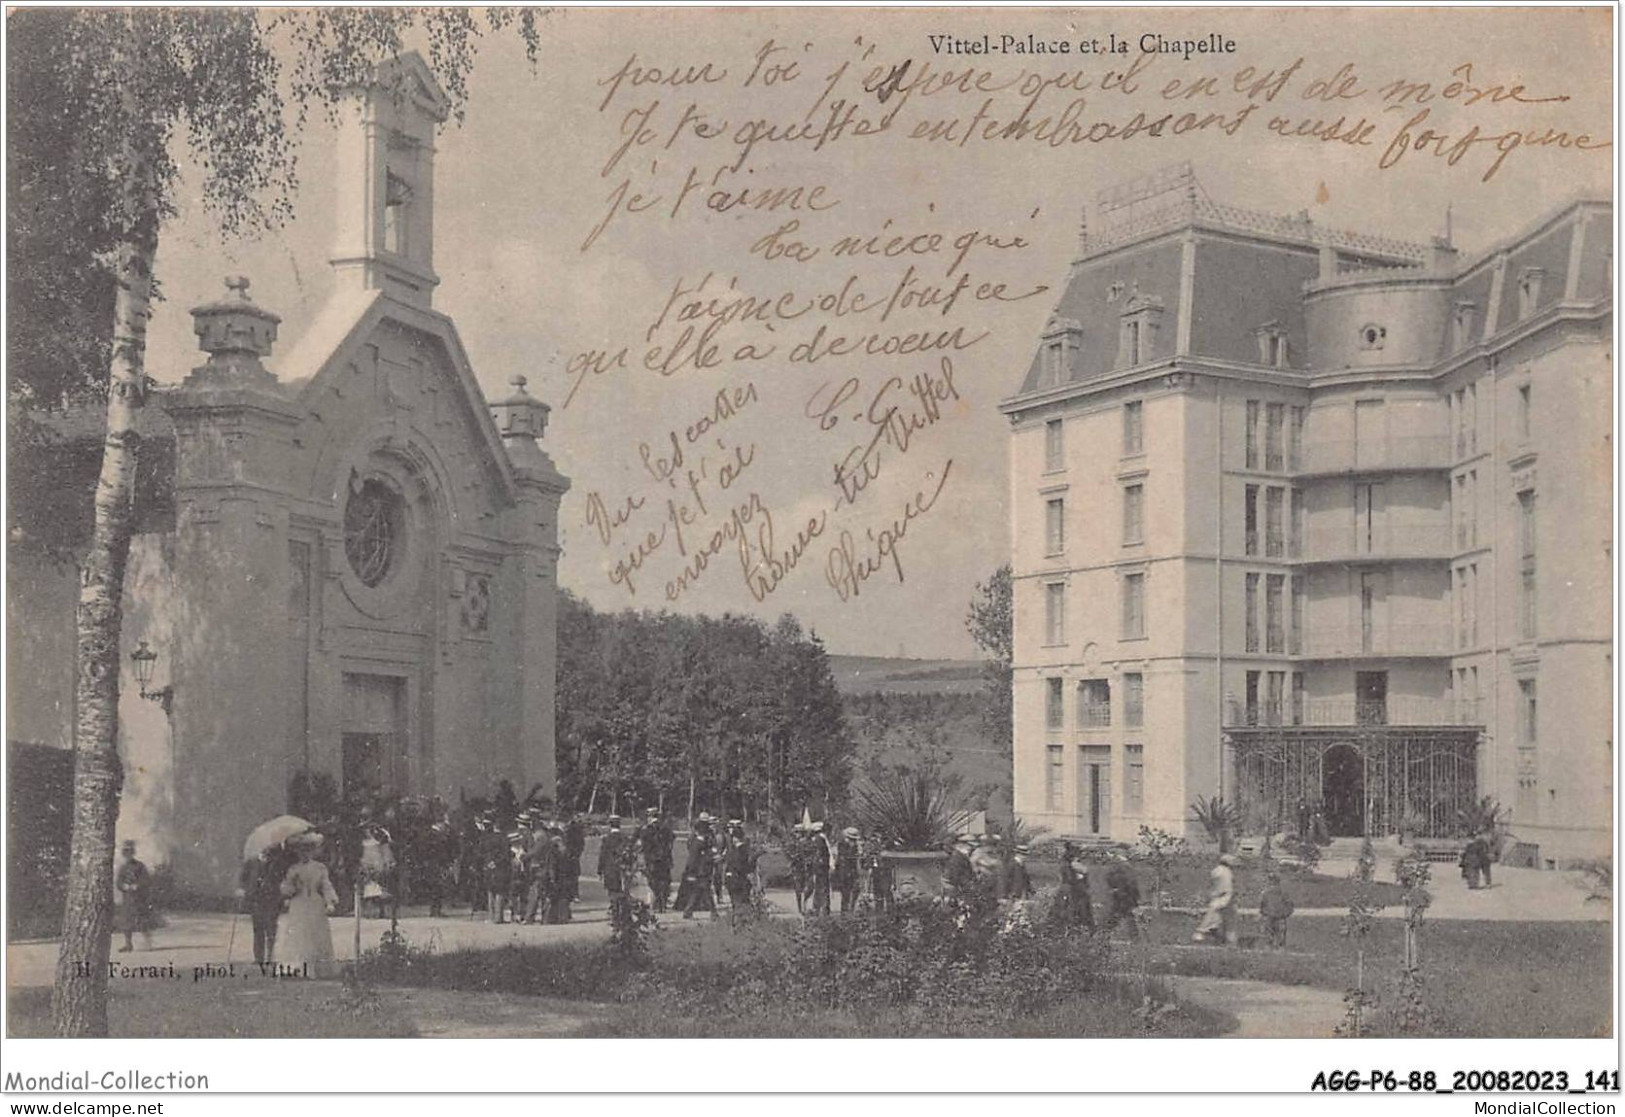 Vittel-Palace et la Chapelle
pour toi j'espère qu'il en est de même
Je te quitte en t'embrassant aussi fort que
je t'aime
ta nièce qui
t'aime de tout ce
qu'elle à de coeur
C. G
Du les cartes
que je t'ai
envoyez
trouve tu Vittel
Chique
PALACE
H. Ferrari, phot., Vittel
Mondial-Collection
AGG-P6-88_20082023_141
mondial-collection.com
MondialCollection